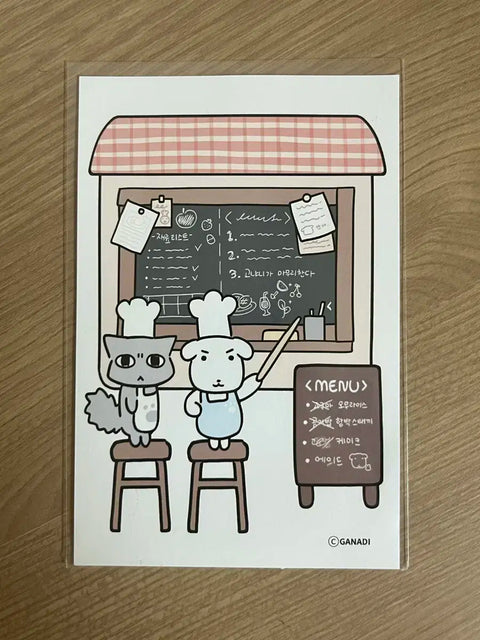 -재료 리스트-
1.
2.
3. 고냐니가 마무리한다
<MENU>
• 오무라이스
• 함박스테끼
• 케이크
• 에이드
ⒸGANADI